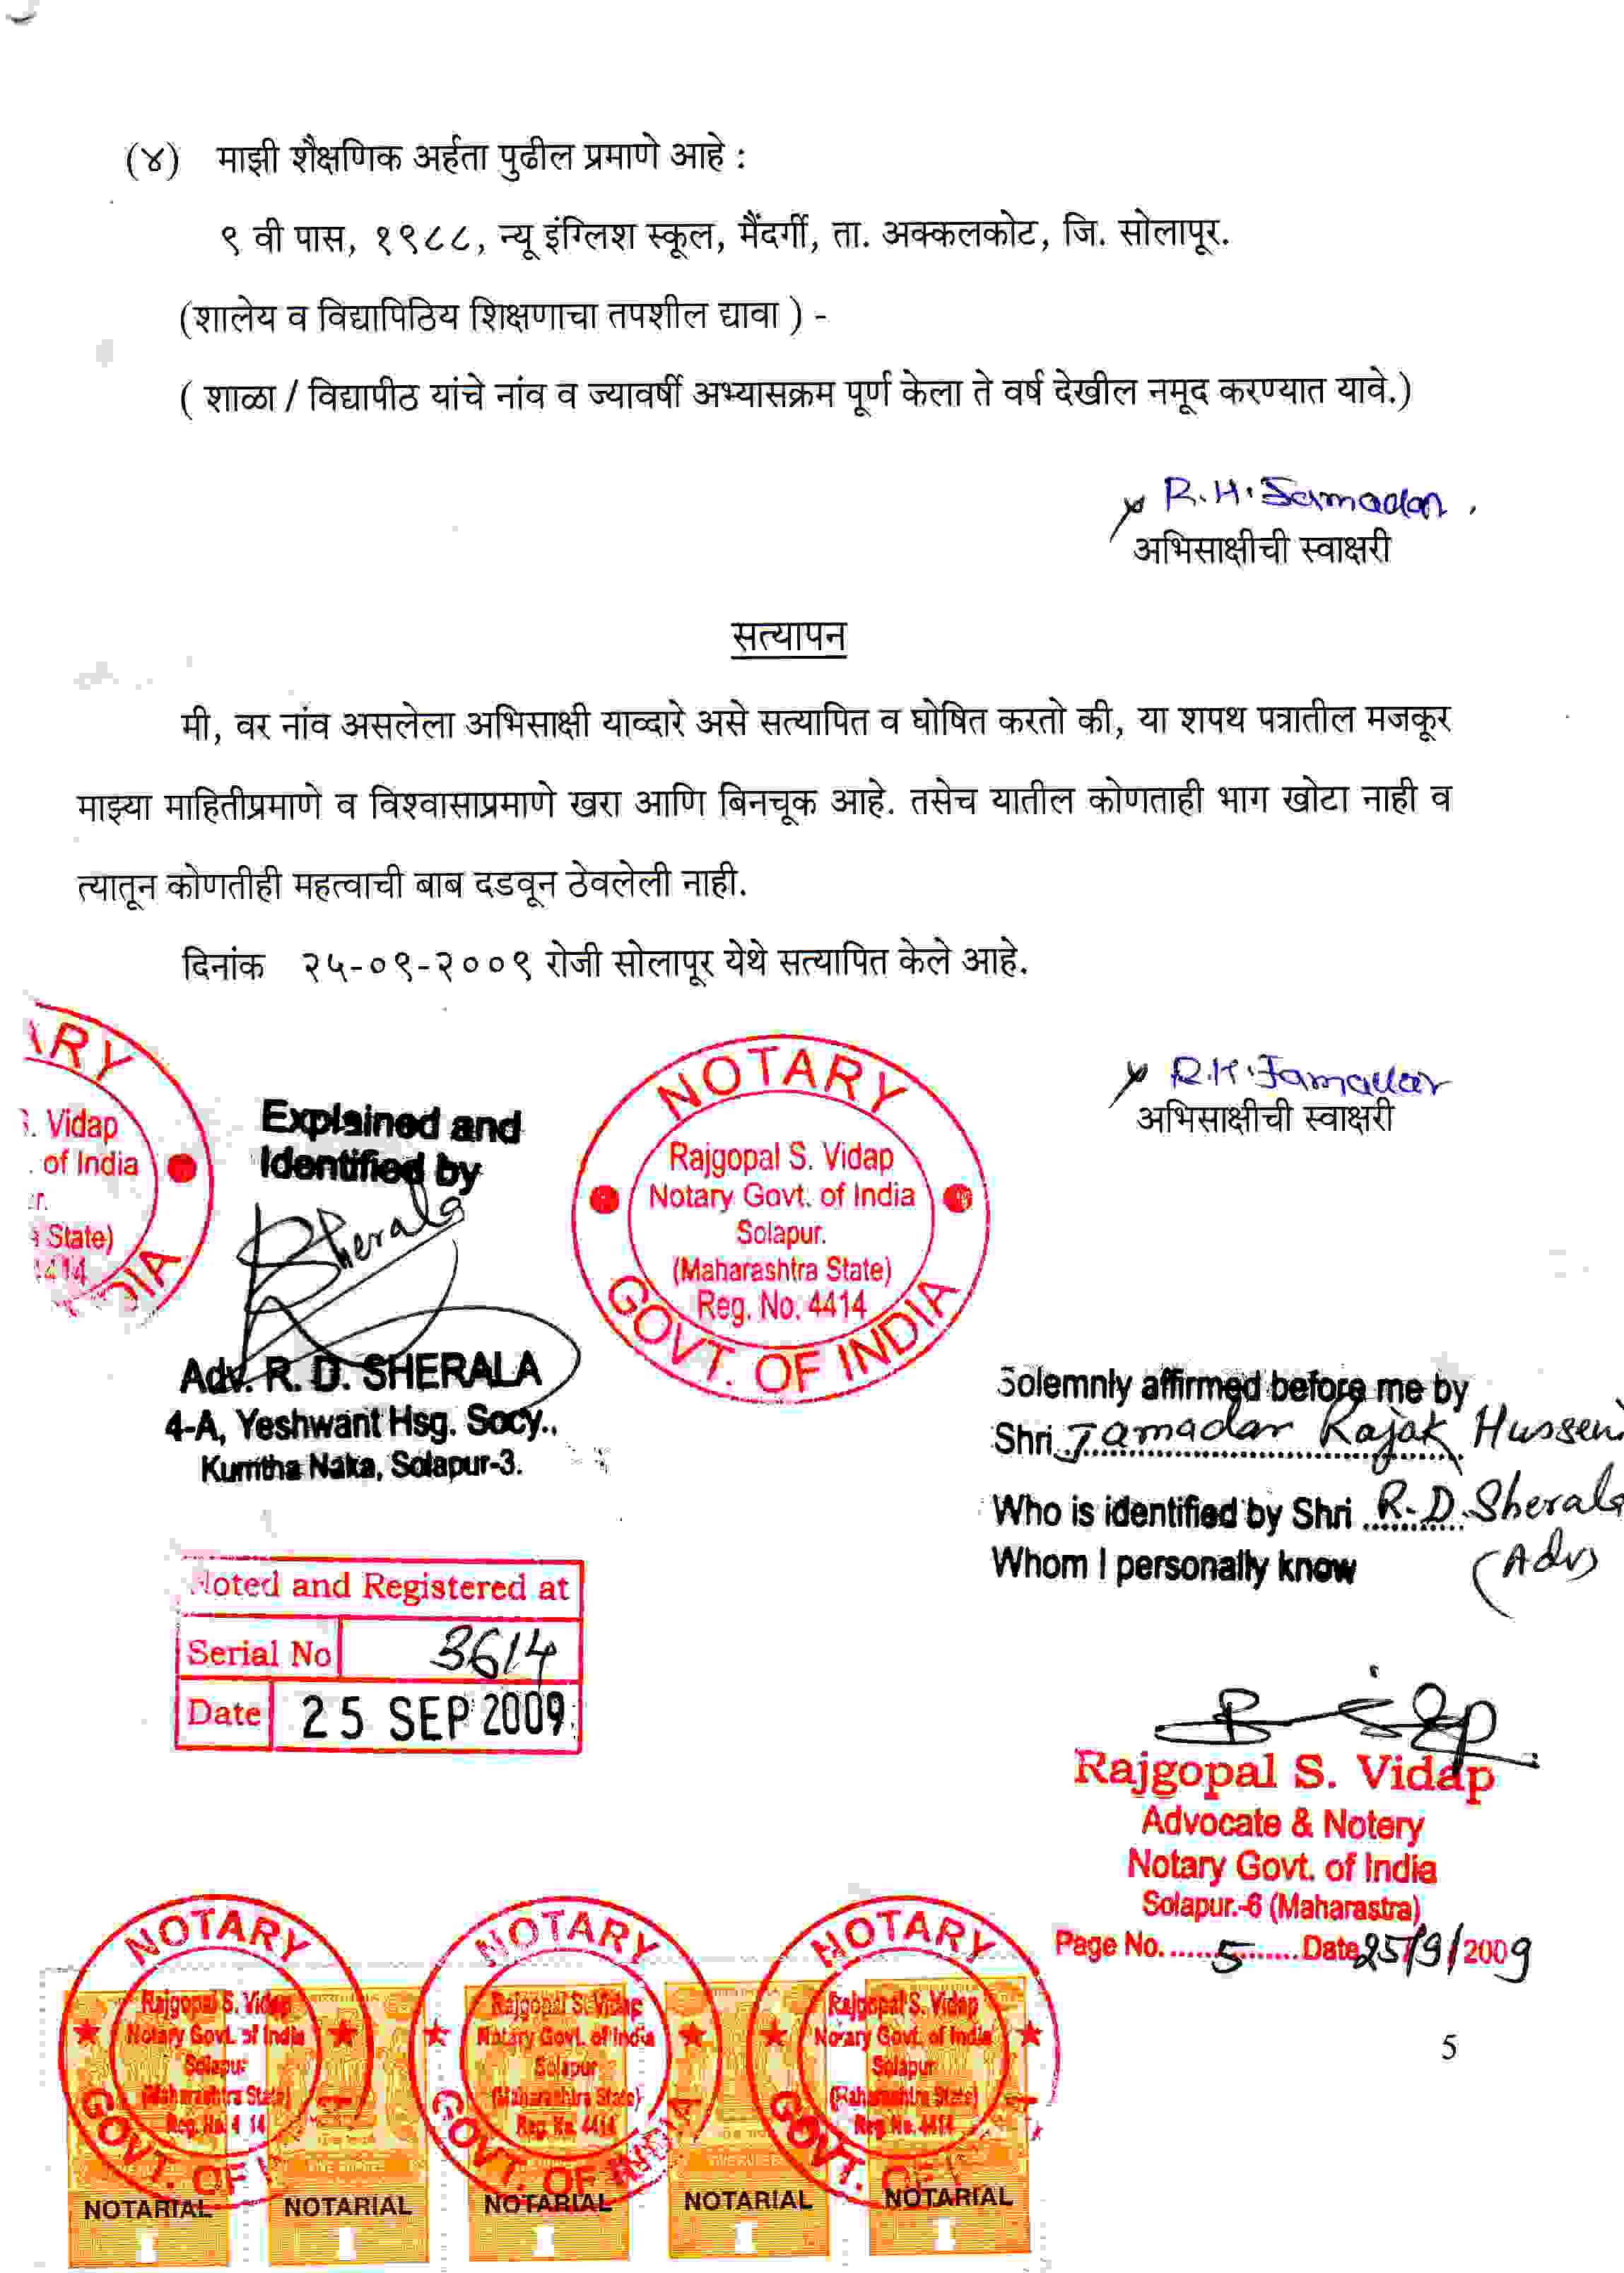 (४) माझी शैक्षणिक अर्हता पुढील प्रमाणे आहे :
९ वी पास, १९८८, न्यू इंग्लिश स्कूल, मैंदर्गी, ता. अक्कलकोट, जि. सोलापूर.
(शालेय व विद्यापिठिय शिक्षणाचा तपशील द्यावा ) -
( शाळा / विद्यापीठ यांचे नांव व ज्यावर्षी अभ्यासक्रम पूर्ण केला ते वर्ष देखील नमूद करण्यात यावे.)
R.H.Jamadar
अभिसाक्षीची स्वाक्षरी
सत्यापन
मी, वर नांव असलेला अभिसाक्षी याव्दारे असे सत्यापित व घोषित करतो की, या शपथ पत्रातील मजकूर
माझ्या माहितीप्रमाणे व विश्वासाप्रमाणे खरा आणि बिनचूक आहे. तसेच यातील कोणताही भाग खोटा नाही व
त्यातून कोणतीही महत्वाची बाब दडवून ठेवलेली नाही.
दिनांक २५-०९-२००९ रोजी सोलापूर येथे सत्यापित केले आहे.
R.H.Jamadar
अभिसाक्षीची स्वाक्षरी
ARY
S. Vidap
. of India
State)
DIA
Explained and
Identified by
Sherala
Adv. R. D. SHERALA
4-A, Yeshwant Hsg. Socy.,
Kumtha Naka, Solapur-3.
NOTARY
Rajgopal S. Vidap
Notary Govt. of India
Solapur.
(Maharashtra State)
Reg. No. 4414
GOVT. OF INDIA
Solemnly affirmed before me by
Shri Jamadar Rajak Hussen
Who is identified by Shri R.D.Sherala
Whom I personally know (Adv)
Noted and Registered at
Serial No 3614
Date 25 SEP 2009
Rajgopal S. Vidap
Advocate & Notery
Notary Govt. of India
Solapur.-6 (Maharastra)
Page No. 5 Date 25/9/2009
5
NOTARY
Rajgopal S. Vidap
Notary Govt. of India
Solapur
(Maharashtra State)
Reg. No. 4414
GOVT. OF
NOTARY
Rajgopal S. Vidap
Notary Govt. of India
Solapur
(Maharashtra State)
Reg. No. 4414
GOVT. OF INDIA
NOTARY
Rajgopal S. Vidap
Notary Govt. of India
Solapur
(Maharashtra State)
Reg. No. 4414
GOVT. OF
NOTARIAL NOTARIAL NOTARIAL NOTARIAL NOTARIAL